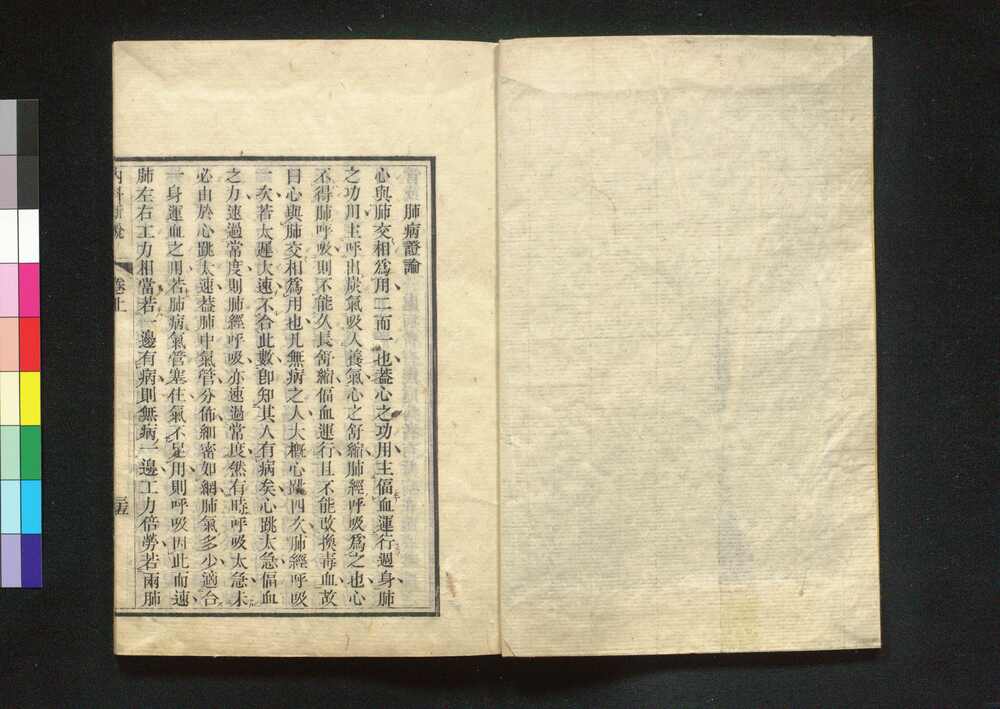 肺病證論
心與肺交相爲用二而一也蓋心之功用主偪血運行週身肺
之功用主呼出炭氣吸入養氣心之舒縮肺經呼吸爲之也心
不得肺呼吸則不能久長舒縮偪血運行且不能改換毒血故
曰心與肺交相爲用也凡無病之人大概心跳四次肺經呼吸
一次若太遲太速不合此數卽知其人有病矣心跳太急偪血
之力速過當度則肺經呼吸亦速過當度然有時呼吸太急未
必由於心跳太速蓋肺中氣管分佈細密如網肺氣多少適合
一身運血之用若肺病氣管塞住氣不足用則呼吸因此而速
肺左右工力相當若一邊有病則無病一邊工力倍勞若兩肺
內科新說 卷上 二五